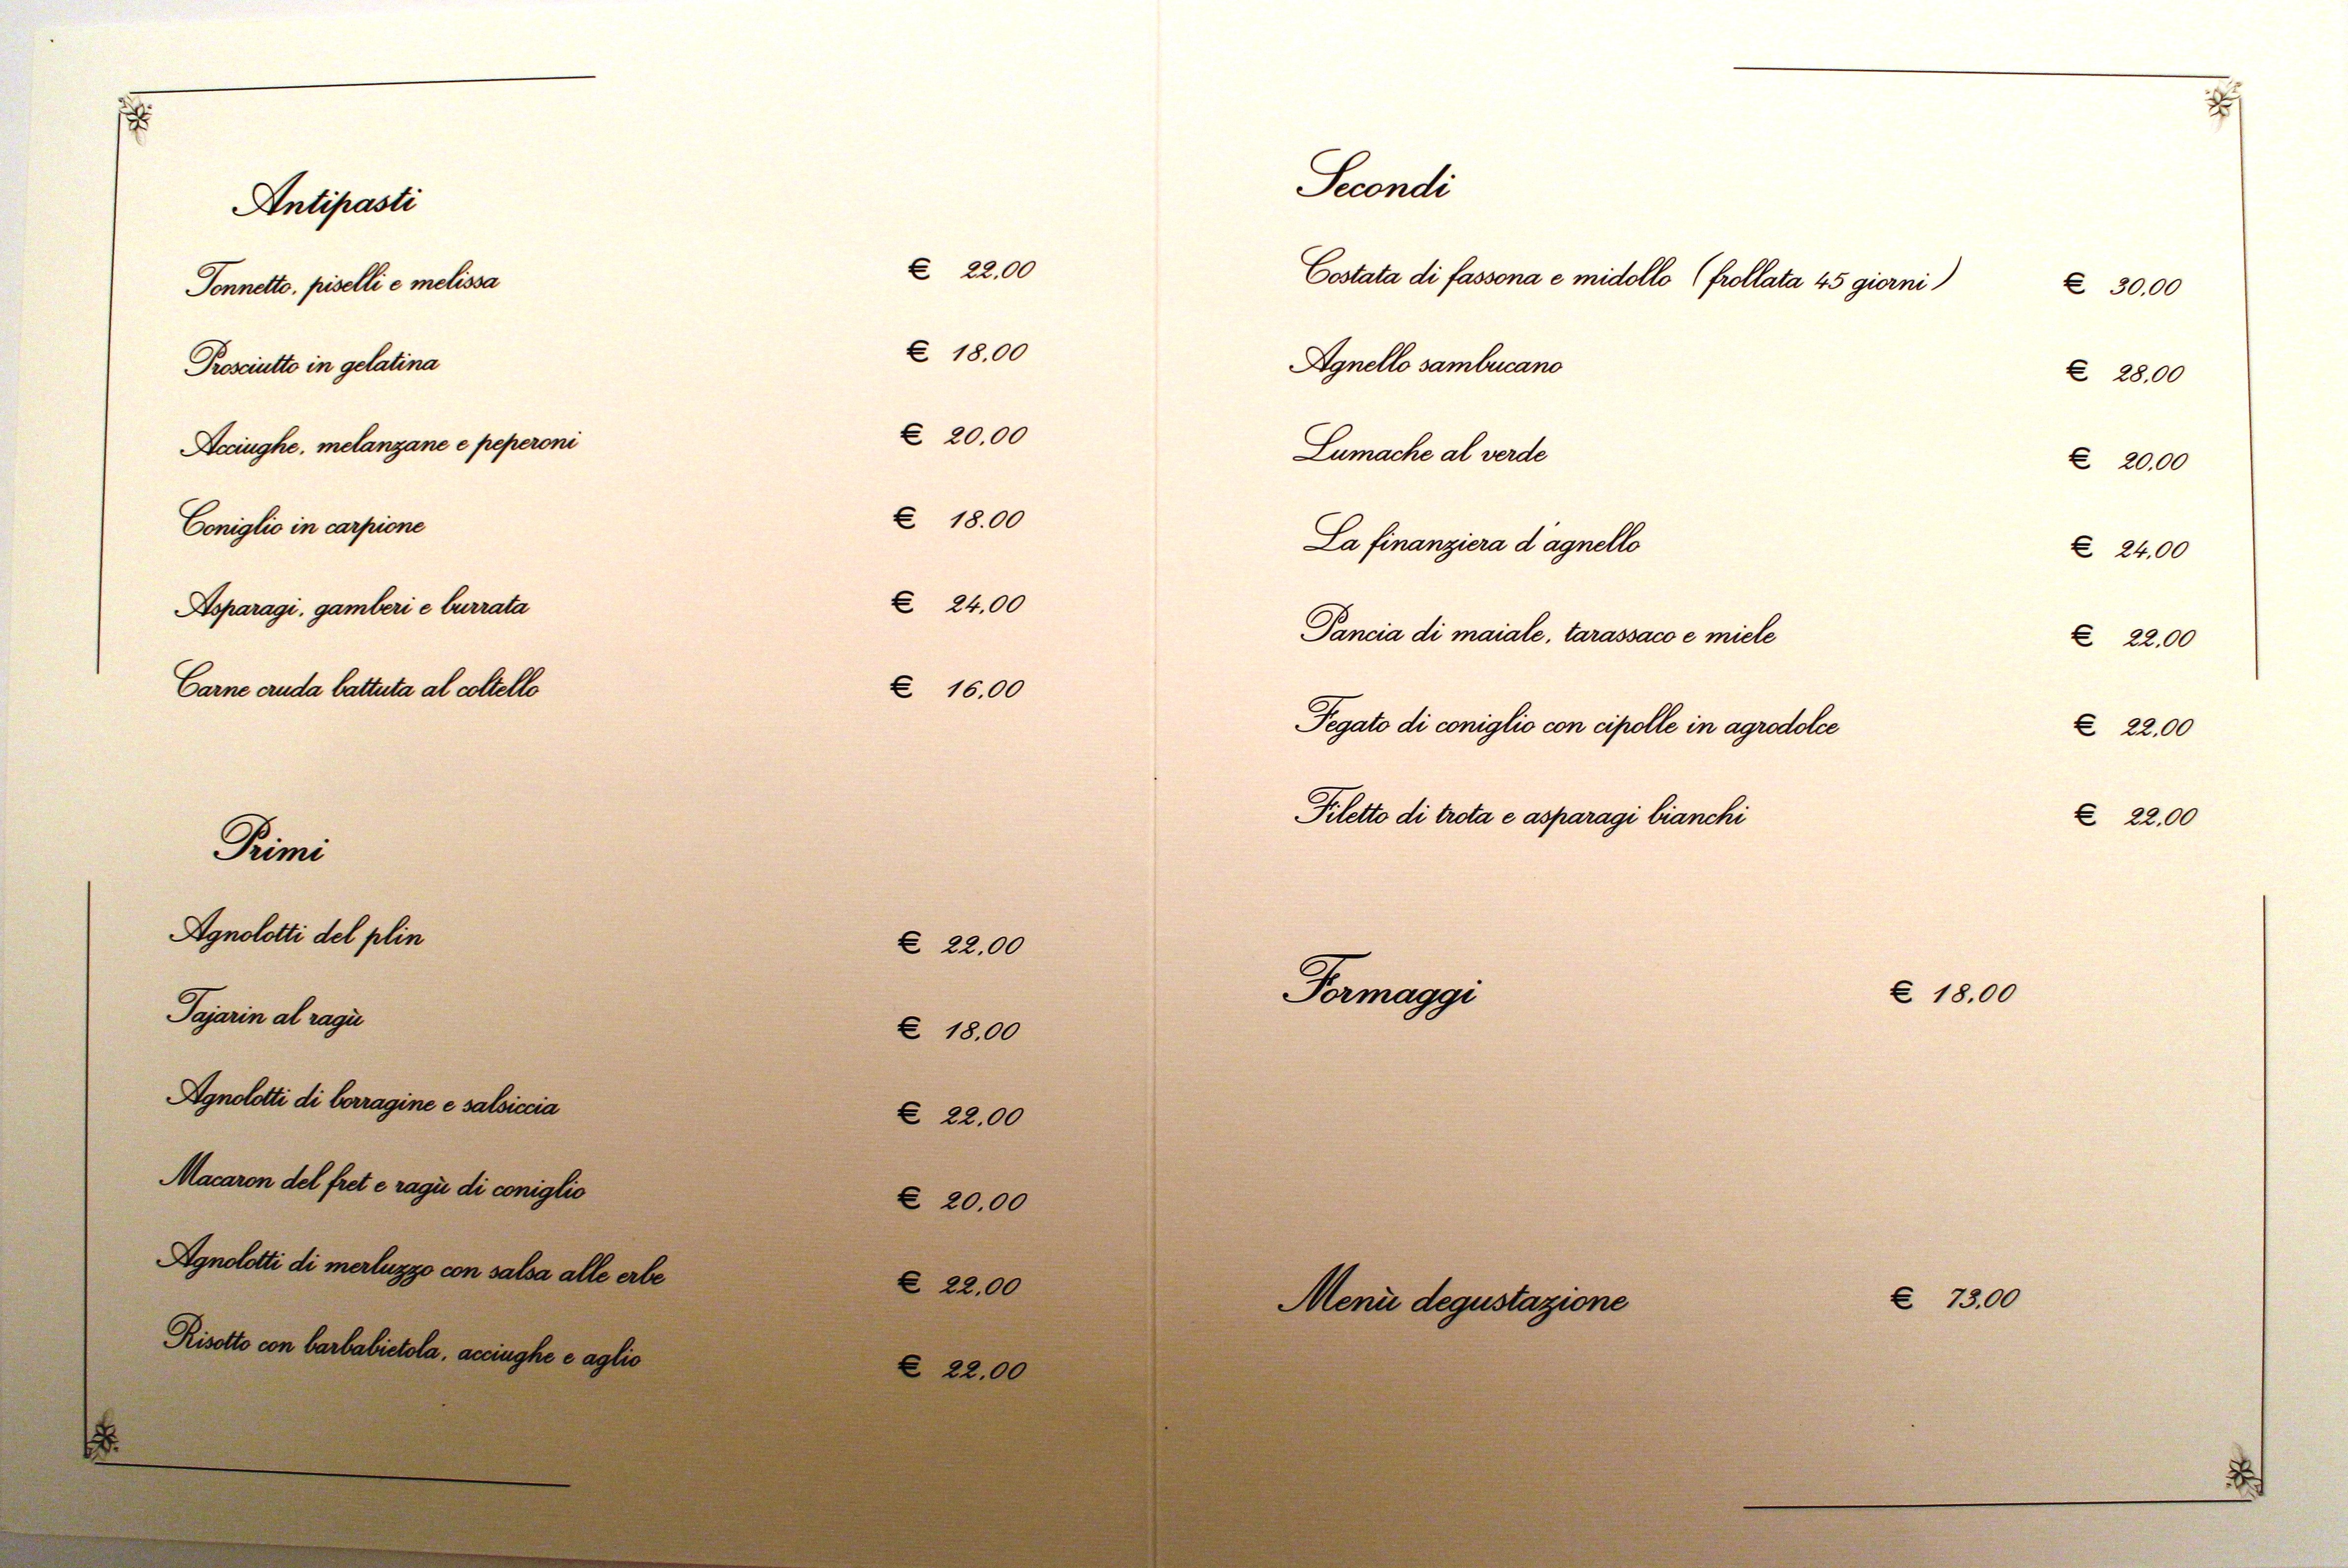 Antipasti
Tonnetto, piselli e melissa € 22,00
Prosciutto in gelatina € 18,00
Acciughe, melanzane e peperoni € 20,00
Coniglio in carpione € 18.00
Asparagi, gamberi e burrata € 24,00
Carne cruda battuta al coltello € 16,00
Primi
Agnolotti del plin € 22,00
Tajarin al ragù € 18,00
Agnolotti di borragine e salsiccia € 22,00
Macaron del fret e ragù di coniglio € 20,00
Agnolotti di merluzzo con salsa alle erbe € 22,00
Risotto con barbabietola, acciughe e aglio € 22,00
Secondi
Costata di fassona e midollo (frollata 45 giorni) € 30,00
Agnello sambucano € 28,00
Lumache al verde € 20,00
La finanziera d'agnello € 24,00
Pancia di maiale, tarassaco e miele € 22,00
Fegato di coniglio con cipolle in agrodolce € 22,00
Filetto di trota e asparagi bianchi € 22,00
Formaggi € 18,00
Menù degustazione € 73,00